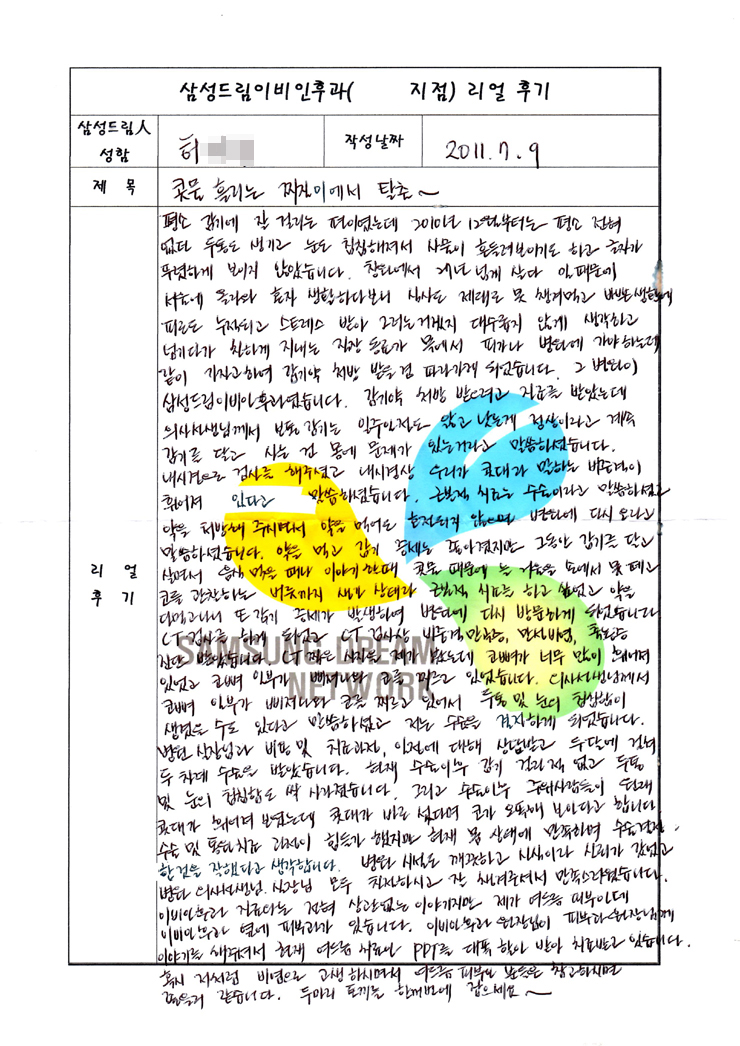 삼성드림이비인후과( 지점) 리얼 후기
삼성드림人 성함
허
작성날짜
2011.7.9
제 목
콧물 흘리는 찌질이에서 탈출~
리 얼
후 기
평소 감기에 잘 걸리는 편이였는데 2010년 12월부터는 평소 전혀
없던 두통도 생기고 눈도 침침해져서 사물이 흔들려보이기도 하고 글자가
뚜렷하게 보이지 않았습니다. 창원에서 21년 넘게 살다 일 때문에
서울에 올라와 혼자 생활하다보니 식사도 제대로 못 챙겨먹고 바쁜 생활에
피로도 누적되고 스트레스 받아 그러는거겠지 대수롭지 않게 생각하고
넘기다가 친하게 지내는 직장 동료가 목에서 피가나 병원에 가야하는데
같이 가자고하여 감기약 처방 받을 겸 따라가게 되었습니다. 그 병원이
삼성드림이비인후과였습니다. 감기약 처방 받으려고 진료를 받았는데
의사선생님께서 보통 감기는 일주일정도 앓고 낫는게 정상이라고 계속
감기를 달고 사는 건 몸에 문제가 있는거라고 말씀하셨습니다.
내시경으로 검사를 해주셨고 내시경상 우리가 콧대라 말하는 비중격이
휘어져 있다고 말씀하셨습니다. 근본적 치료는 수술이라고 말씀하셨고
약을 처방해 주시면서 약을 먹어도 호전되지 않으면 병원에 다시 오라고
말씀하셨습니다. 약을 먹고 감기 증세는 좋아졌지만 그동안 감기를 달고
살면서 음식 먹을 때나 이야기 할때 콧물 때문에 늘 휴지를 손에서 못 떼고
코를 관찰하는 버릇까지 생긴 상태라 근본적 치료를 하고 싶었고 약을
다먹고나니 또 감기 증세가 발생하여 병원에 다시 방문하게 되었습니다
CT검사를 하게 되었고 CT 검사상 비중격만곡증, 만성비염, 축농증
진단 받았습니다. CT 찍은 사진을 제가 봤는데 코뼈가 너무 많이 휘어져
있었고 코뼈 일부가 삐져나와 코를 찌르고 있었습니다. 의사선생님께서
코뼈 일부가 삐져나와 코를 찌르고 있어서 두통 및 눈의 침침함이
생겼을 수도 있다고 말씀하셨고 저는 수술을 결정하게 되었습니다.
병원 실장님과 비용 및 치료과정, 일정에 대해 상담받고 두달에 걸쳐
두 차례 수술을 받았습니다. 현재 수술이후 감기 걸린적 없고 두통
및 눈의 침침함도 싹 사라졌습니다. 그리고 수술이후 주위사람들이 원래
콧대가 휘어져 보였는데 콧대가 바로 섰다며 코가 오똑해 보인다고 합니다.
수술 및 통원치료 과정이 힘들긴 했지만 현재 몸 상태에 만족하며 수술결정
한것을 잘했다고 생각합니다. 병원 시설도 깨끗하고 최신식이라 신뢰가 갔었고
병원 의사선생님, 실장님 모두 친절하시고 잘 챙겨주셔서 만족스러웠습니다.
이비인후과 진료와는 전혀 상관없는 이야기지만 제가 여드름 피부인데
이비인후과 옆에 피부과가 있습니다. 이비인후과 원장님이 피부과원장님께
이야기를 해주셔서 현재 여드름 치료인 PDT를 대폭 할인 받아 치료받고 있습니다.
혹시 저처럼 비염으로 고생하시면서 여드름 피부인 분들은 참고하시면
좋을거 같습니다. 두마리 토끼를 한꺼번에 잡으세요~
SAMSUNG DREAM
NETWORK